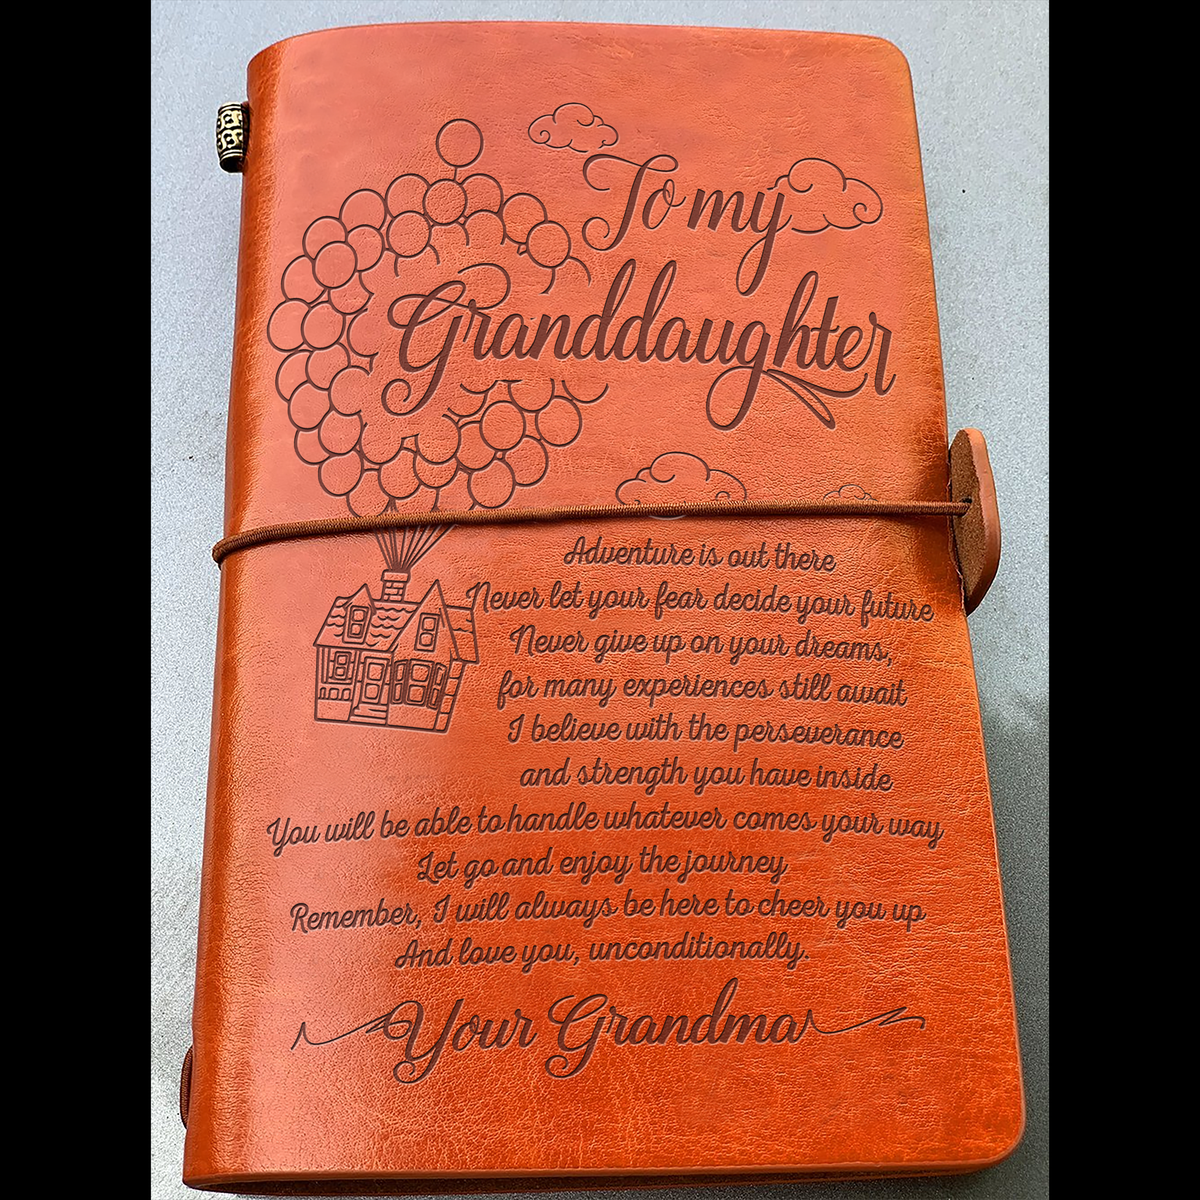 To my
Granddaughter
Adventure is out there
Never let your fear decide your future
Never give up on your dreams,
for many experiences still await
I believe with the perseverance
and strength you have inside
You will be able to handle whatever comes your way
Let go and enjoy the journey
Remember, I will always be here to cheer you up
And love you, unconditionally.
Your Grandma